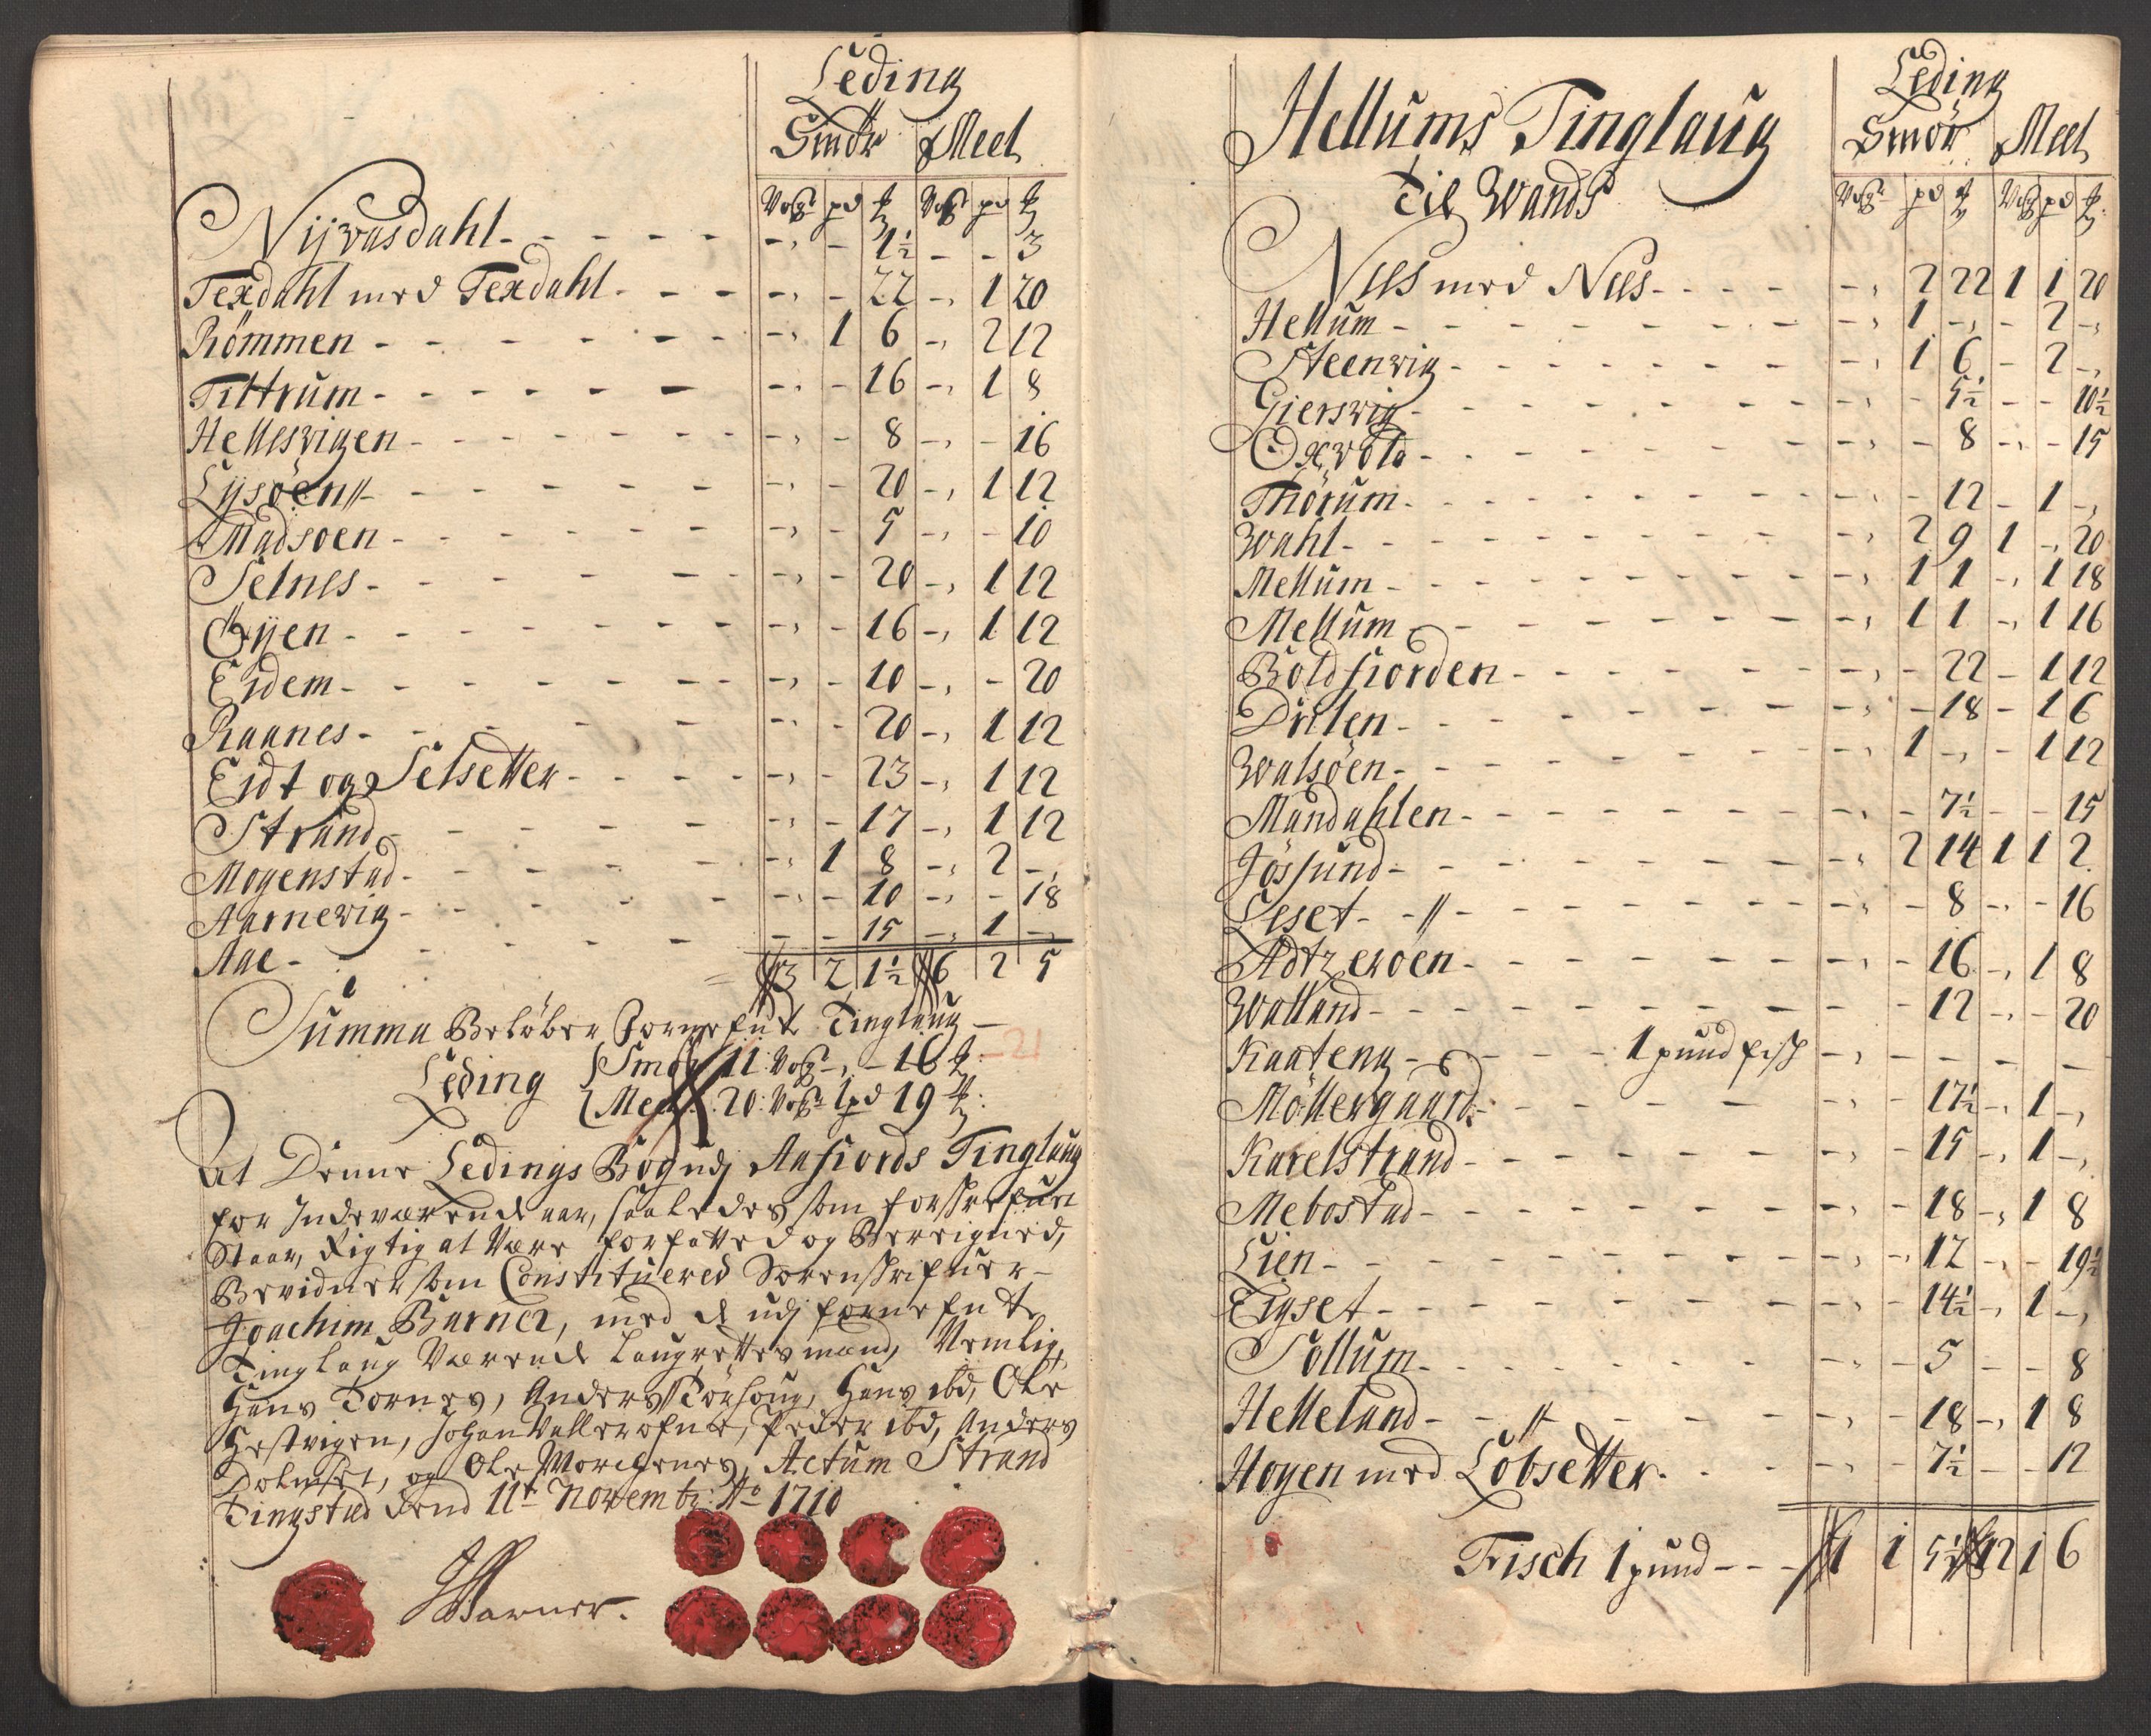 Leding
Smör Meel
Vog pd ℔ Vog pd ℔
Nijvasdahl - - - - - - -, - 1½ - - 3
Texdahl med Texdahl - - - -, - 22 -, 1 20
Römmen - - - - - - - -, 1 6 -, 2 12
Tittrum - - - - - - -, - 16 -, 1 8
Hellesvigen - - - - - - - -, - 8 -, - 16
Lysöen - - - - - - -, - 20 -, 1 12
Madsöen - - - - - - -, - 5 -, - 10
Selnes - - - - - - -, - 20 -, 1 12
Öyen - - - - - - - -, - 16 -, 1 12
Eidem - - - - - - - -, - 10 -, - 20
Raanes - - - - - -, - 20 -, 1 12
Eidt og Selsetter - - - - - -, - 23 -, 1 12
Strand - - - - - -, - 17 -, 1 12
Mogenstad - - - - - -, 1 8 -, 2 -,
Aarnevig - - - - - -, - 10 -, - 18
Aae - - - - - - - 15 -, 1 -,
3 2 1½ 6 2 5
Summa Beløber forneffnt Tinglaug -
Leding Smör 11 Vog -, - 16 ℔ - 21
Meel 20 Vog 1 pd 19 ℔
At Denne Ledings Bog udj Aafiords Tinglaug
for Indeværende aar, saaledes som forskrefuen
Staar, Rigtig at Være forfatted og Beregned,
Bevidner som Constituered Sorenskrifuer -
Joachim Barner, med de udj forneffnte
Tinglaug Værende Laugrettesmænd, Nemlig,
Hans Tornes, Anders Törhoug, Hans ibd, Ole
Hestvigen, Johan Vallersofne, Peder ibd, Anders
Dolmset, og Ole Moresenes, Actum Strand
Tingstad dend 11t Novembr: Ao 1710
JBarner.
Hellums Tinglaug
Til Wands
Leding
Smör Meel
Vog pd ℔ Vog pd ℔
Nes med Nes - - - - -, 2 22 1 1 20
Hellum - - - - - - - -, 1 -, - 2 -,
Steenvig - - - - - - - -, 1 6 - 2 -,
Giersvig - - - - - - - - - 5½ - - 10½
Oxvold - - - - - - - -, - 8 -, - 15
Thörum - - - - - - - -, - 12 - 1 -,
Wahl - - - - - - - -, 2 9 1 -, 20
Mellum - - - - - - - -, 1 1 -, 1 18
Mellum - - - - - - - -, 1 1 -, 1 16
Boldfiorden - - - - - - -, - 22 - 1 12
Dielen - - - - - - - -, - 18 - 1 6
Walsöen - - - - - - - -, 1 -, - 1 12
Mandahlen - - - - - - -, - 7½ - - 15
Jössund - - - - - - - -, 2 14 1 1 2
Leset - - - - - - - -, - 8 -, - 16
Adtzeroen - - - - - - -, - 16 -, 1 8
Walland - - - - - - - - - 12 -, - 20
Kaateng - - - - - 1 pund fisch -, - - - - -
Möllergaard - - - - - - -, - 17½ -, 1 -,
Karelstrand - - - - - - -, - 15 -, 1 -,
Mebostad - - - - - - - -, - 18 -, 1 8
Lien - - - - - - - -, - 12 -, - 19½
Eigset - - - - - - - -, - 14½ -, 1 -,
Sollum - - - - - - - -, - 5 - - 8
Helleland - - - - - - -, - 18 -, 1 8
Hoyen med Löbsetter - - - -, - 7½ - - 12
Fisch 1 pund - - - 1 5½ 12 1 6